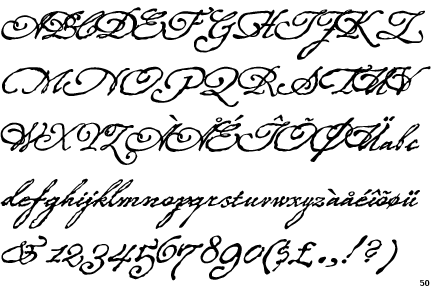 ABCDEFGHIJKL
MNOPQRSTUV
WXYZÀÅÉÎÕØÜabc
defghijklmnopqrstuvwxyzàåéîõøü
&1234567890($£.,!?)
50